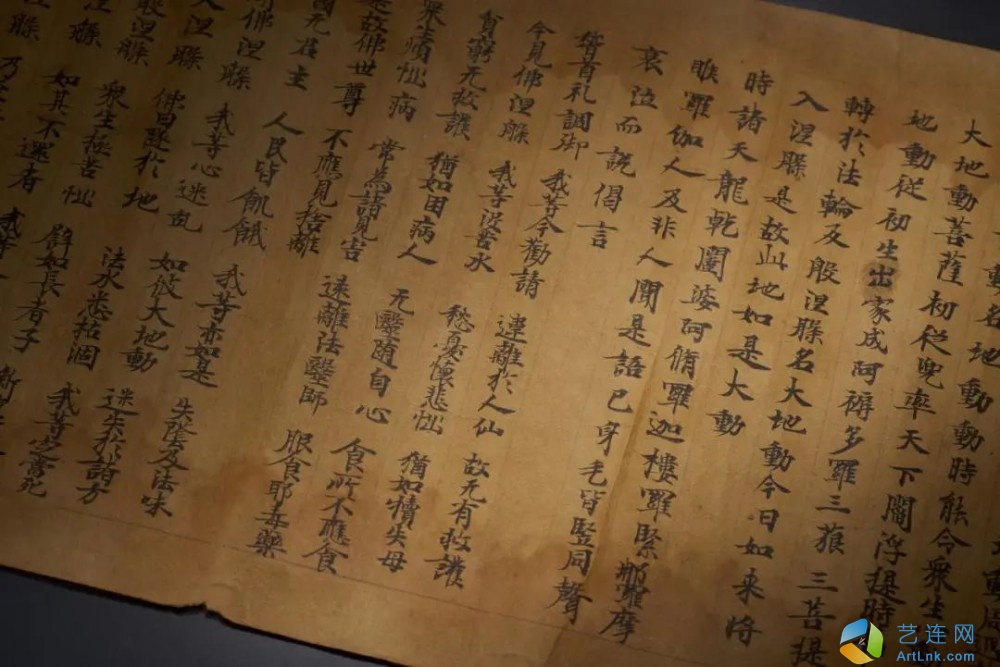 重名地動動時能令眾生
大地動菩薩初從兜率天下閻浮提時
地動從初生出家成阿耨多羅三藐三菩提
轉於法輪及般涅槃名大地動今日如来將
入涅槃是故此地如是大動
時諸天龍乾闥婆阿脩羅迦樓羅緊那羅摩
睺羅伽人及非人聞是語已身毛皆豎同聲
哀泣而說偈言
稽首礼調御 我等今勸請 違離於人仙 故无有救護
今見佛涅槃 我等沒苦水 愁憂懷悲惱 猶如犢失母
貧窮无救護 猶如困病人 无醫隨自心 食所不應食
眾生煩惱病 常為諸見害 遠離法醫師 服食耶毒藥
是故佛世尊 不應見捨離
國无君主 人民皆飢餓 我等亦如是 失蔭及法味
聞佛涅槃 我等心迷乱 如彼大地動 迷失於諸方
入涅槃 佛日墜於地 法水悉枯涸 我等定當死
般涅槃 眾生極苦惱 譬如長者子
如其不還者
艺连网
ArtLnk.com